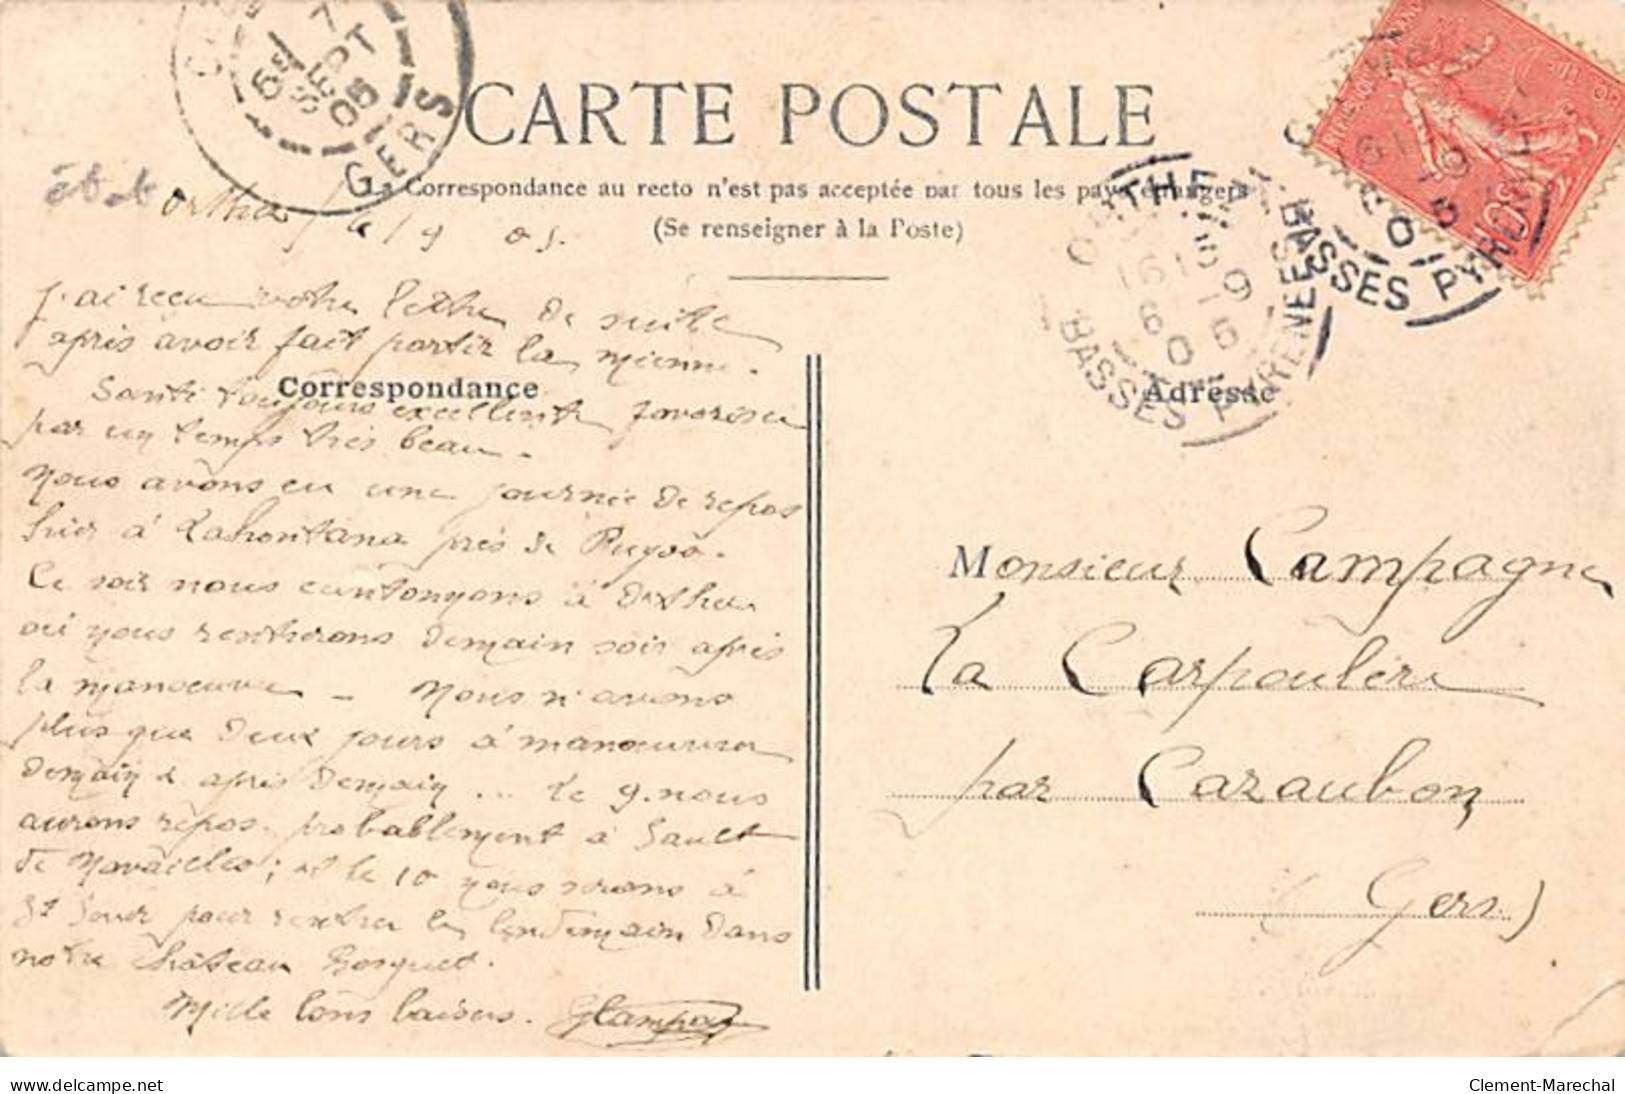 CARTE POSTALE
La Correspondance au recto n'est pas acceptée par tous les pays étrangers
(Se renseigner à la Poste)
GERS
7
SEPT
05
ORTHEZ
BASSES PYRENEES
BASSES PYRENEES
Orthez 6/9 05.
J'ai reçu votre lettre de suite
après avoir fait partir la mienne.
Correspondance
Santé toujours excellente favorisée
par un temps très beau.
Nous avons eu une journée de repos
hier à Lahontan près de Puyoô.
Ce soir nous cantonnons à Orthez
où nous rentrerons demain soir après
la manoeuvre - Nous n'avons
plus que deux jours à manoeuvrer
demain & après demain... Le 9 nous
aurons repos probablement à Sault
de Navailles; et le 10 nous serons à
St Sever pour rentrer le lendemain dans
notre château Bosquet.
Mille bons baisers. GCampagne
Adresse
Monsieur Campagne
La Carpoulère
par Cazaubon
(Gers)
delcampe.net
Clement-Marechal